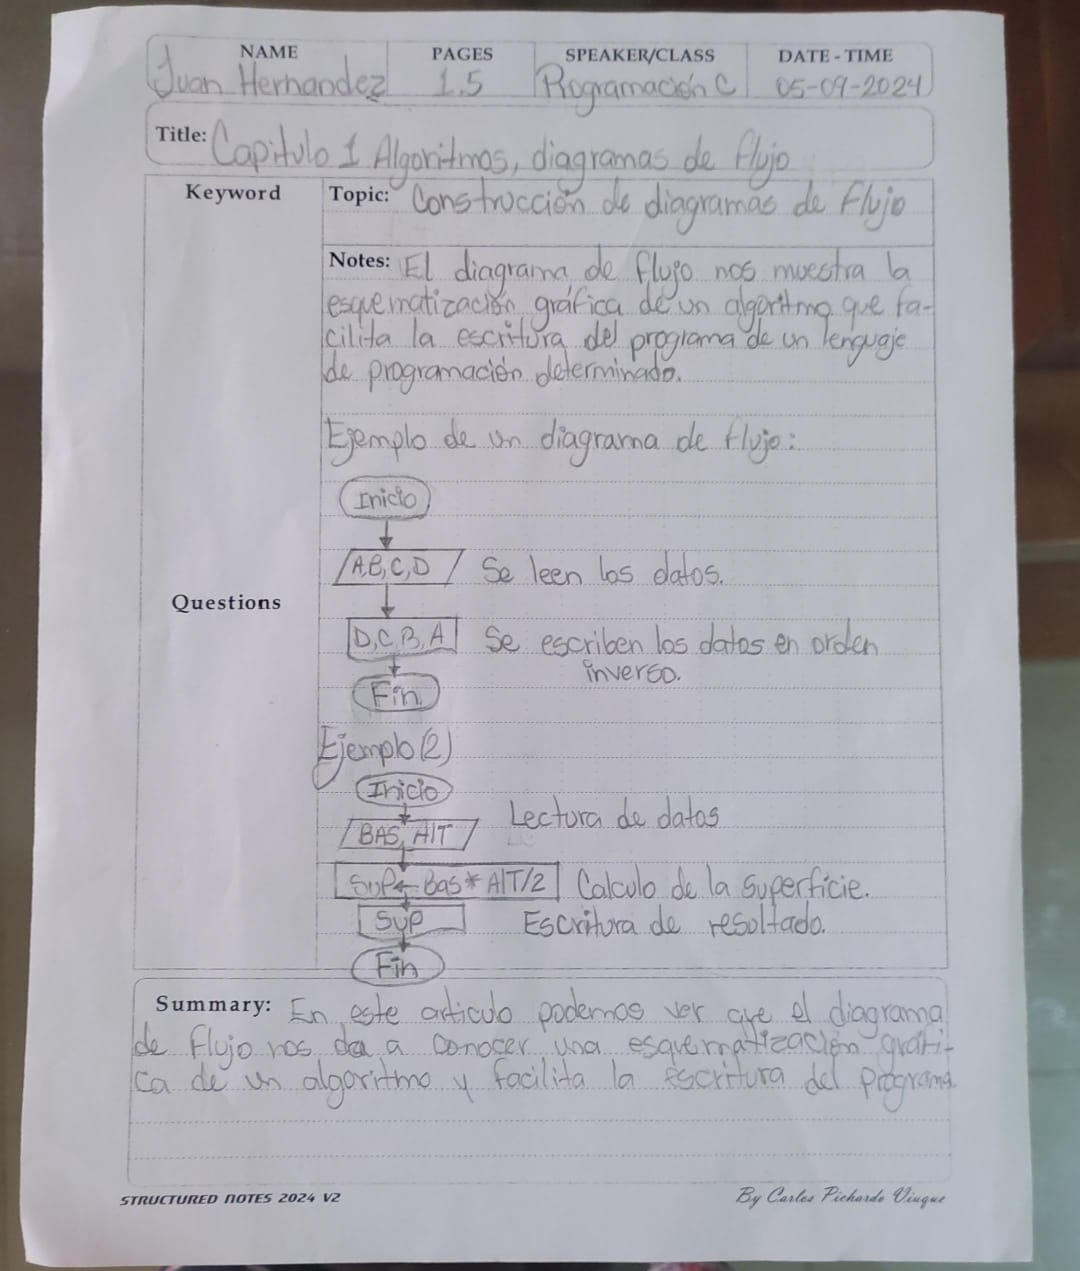 NAME PAGES SPEAKER/CLASS DATE-TIME
Juan Hernandez 1.5 Programación C 05-09-2024
Title: Capitulo 1 Algoritmos, diagramas de flujo
Keyword
Topic: Construcción de diagramas de flujo
Notes: El diagrama de flujo nos muestra la
esquematización gráfica de un algoritmo que fa-
cilita la escritura del programa de un lenguaje
de programación determinado.
Ejemplo de un diagrama de flujo:
Inicio
A,B,C,D Se leen los datos.
Questions
D,C,B,A Se escriben los datos en orden
inverso.
Fin
Ejemplo (2)
Inicio
Lectura de datos
BAS, AlT
SUP← Bas * AlT/2 Calculo de la superficie.
SUP Escritura de resultado.
Fin
Summary: En este articulo podemos ver que el diagrama
de flujo nos da a conocer una esquematización gráfi-
ca de un algoritmo y facilita la escritura del programa.
STRUCTURED NOTES 2024 V2 By Carlos Pichardo Viuque